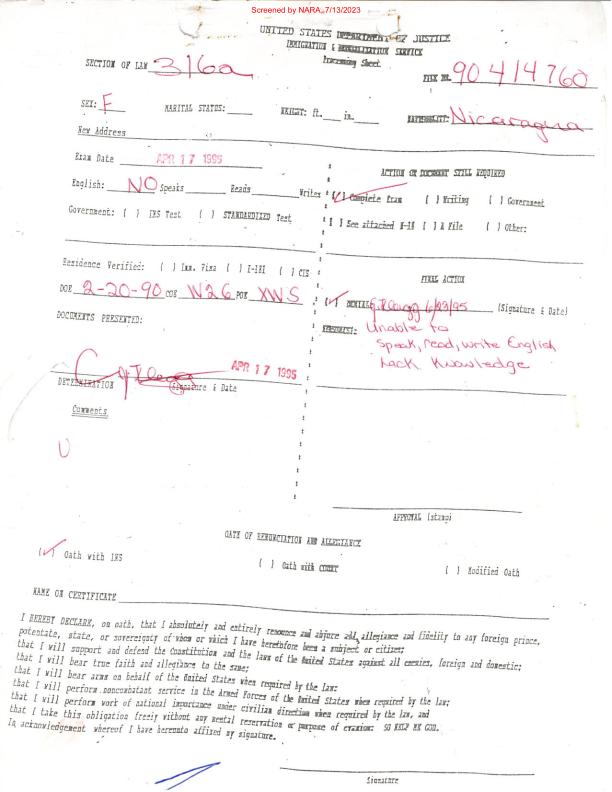 Screened by NARA, 7/13/2023
UNITED STATES DEPARTMENT OF JUSTICE
IMMIGRATION & NATURALIZATION SERVICE
Processing Sheet
SECTION OF LAW 316a
FILE NO. 90414760
SEX: F MARITAL STATUS: HEIGHT: ft. in. NATIONALITY: Nicaragua
New Address
Exam Date APR 17 1995
ACTION OR DOCUMENT STILL REQUIRED
English: NO Speaks Reads Writes
(✓) Complete Exam ( ) Writing ( ) Government
Government: ( ) INS Test ( ) STANDARDIZED Test
( ) See attached N-14 ( ) A File ( ) Other:
Residence Verified: ( ) Imm. Visa ( ) I-181 ( ) CIS
FINAL ACTION
DOE 2-20-90 COE W26 POE XWS
(✓) DENIAL 6/23/95 (Signature & Date)
DOCUMENTS PRESENTED:
REASON(S): Unable to
speak, read, write English
Lack Knowledge
APR 17 1995
DETERMINATION Signature & Date
Comments
U
APPROVAL (stamp)
OATH OF RENUNCIATION AND ALLEGIANCE
(✓) Oath with INS ( ) Oath with COURT ( ) Modified Oath
NAME ON CERTIFICATE
I HEREBY DECLARE, on oath, that I absolutely and entirely renounce and abjure all allegiance and fidelity to any foreign prince,
potentate, state, or sovereignty of whom or which I have heretofore been a subject or citizen;
that I will support and defend the Constitution and the laws of the United States against all enemies, foreign and domestic;
that I will bear true faith and allegiance to the same;
that I will bear arms on behalf of the United States when required by the law;
that I will perform noncombatant service in the Armed Forces of the United States when required by the law;
that I will perform work of national importance under civilian direction when required by the law, and
that I take this obligation freely without any mental reservation or purpose of evasion: SO HELP ME GOD.
In acknowledgement whereof I have hereunto affixed my signature.
Signature